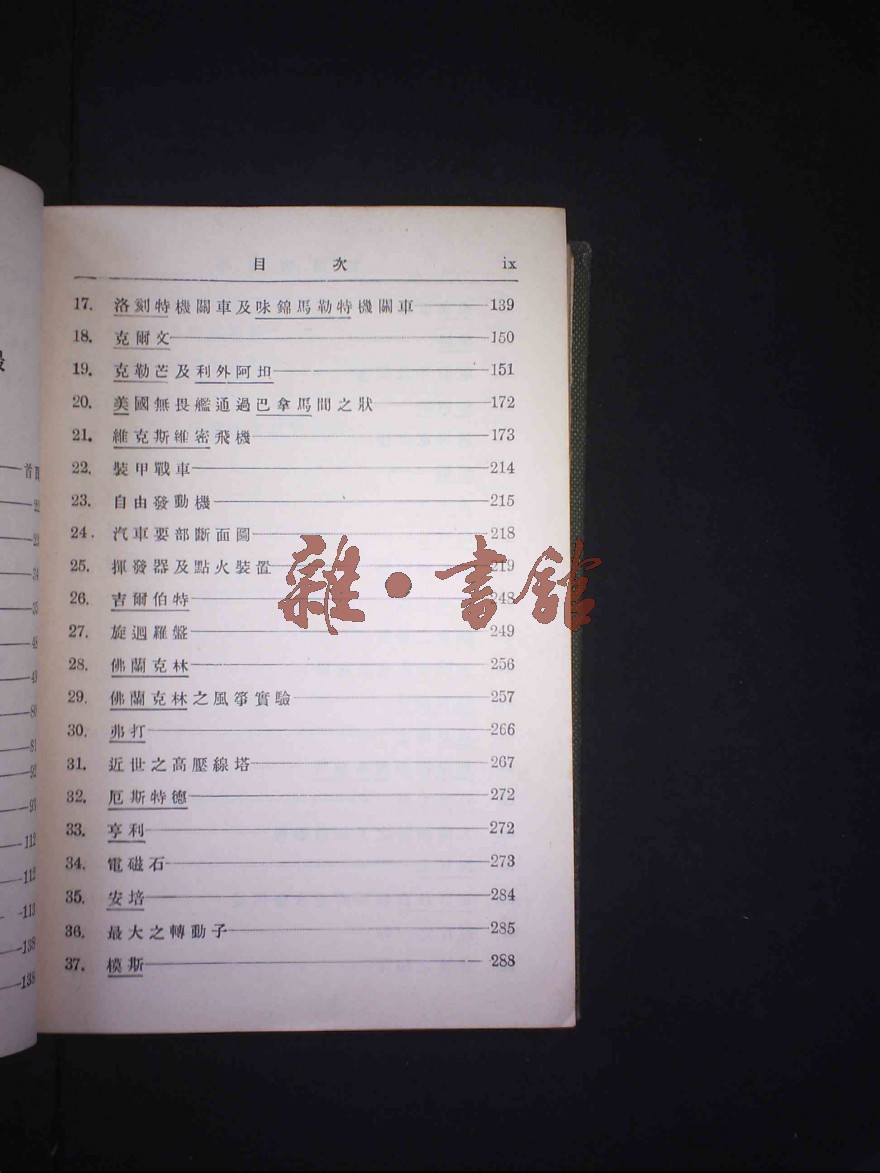 目次 ix
17. 洛刻特機關車及味錦馬勒特機關車 139
18. 克爾文 150
19. 克勒芒及利外阿坦 151
20. 美國無畏艦通過巴拿馬間之狀 172
21. 維克斯維密飛機 173
22. 裝甲戰車 214
23. 自由發動機 215
24. 汽車要部斷面圖 218
25. 揮發器及點火裝置 219
26. 吉爾伯特 248
27. 旋迴羅盤 249
28. 佛蘭克林 256
29. 佛蘭克林之風箏實驗 257
30. 弗打 266
31. 近世之高壓線塔 267
32. 厄斯特德 272
33. 亨利 272
34. 電磁石 273
35. 安培 284
36. 最大之轉動子 285
37. 模斯 288
雜·書館
首
34
80
81
112
112
113
138
138